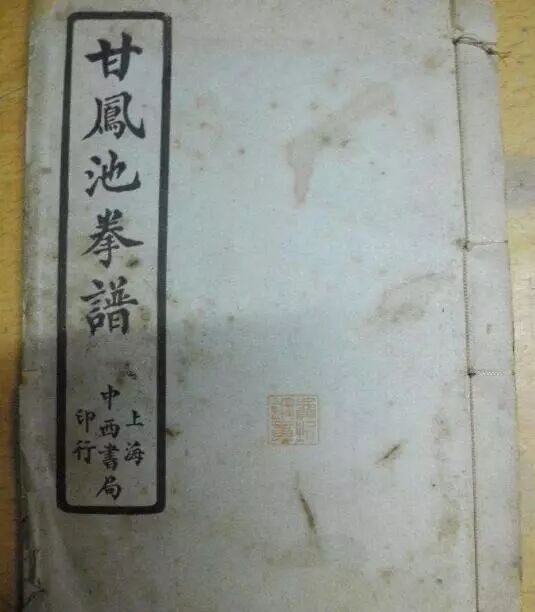 甘鳳池拳譜
上海
中西書局
印行